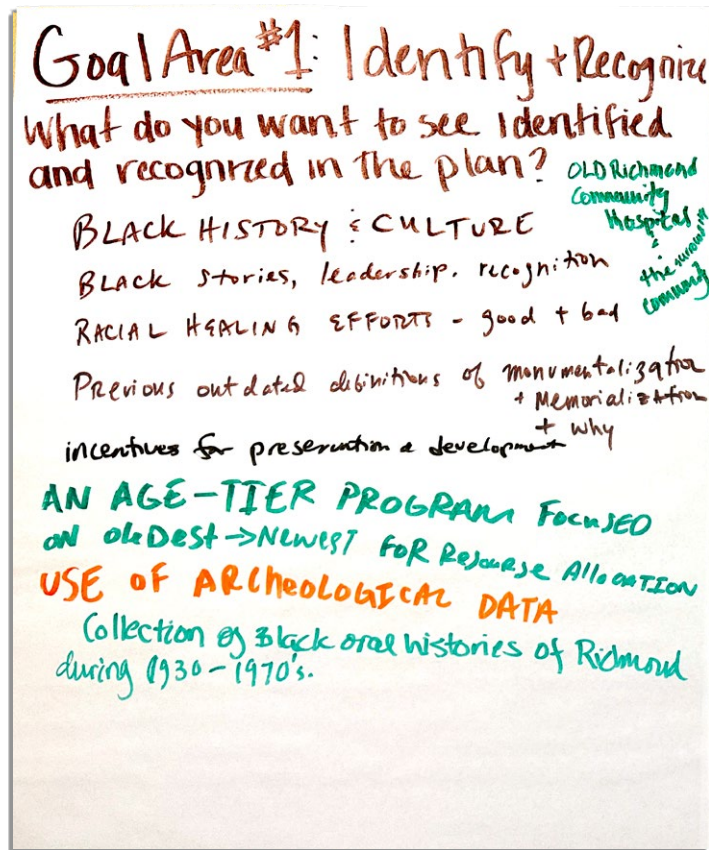 Goal Area #1: Identify + Recognize
What do you want to see identified
and recognized in the plan?
OLD Richmond
Community
Hospital
&
the surrounding
community
BLACK HISTORY & CULTURE
BLACK stories, leadership, recognition
RACIAL HEALING EFFORTS - good + bad
Previous outdated definitions of monumentalization
+ Memorialization
+ why
incentives for preservation & development
AN AGE-TIER PROGRAM FOCUSED
ON OLDEST → NEWEST FOR Resourse AllocATION
USE OF ARCHEOLOGICAL DATA
Collection of Black oral histories of Richmond
during 1930-1970's.